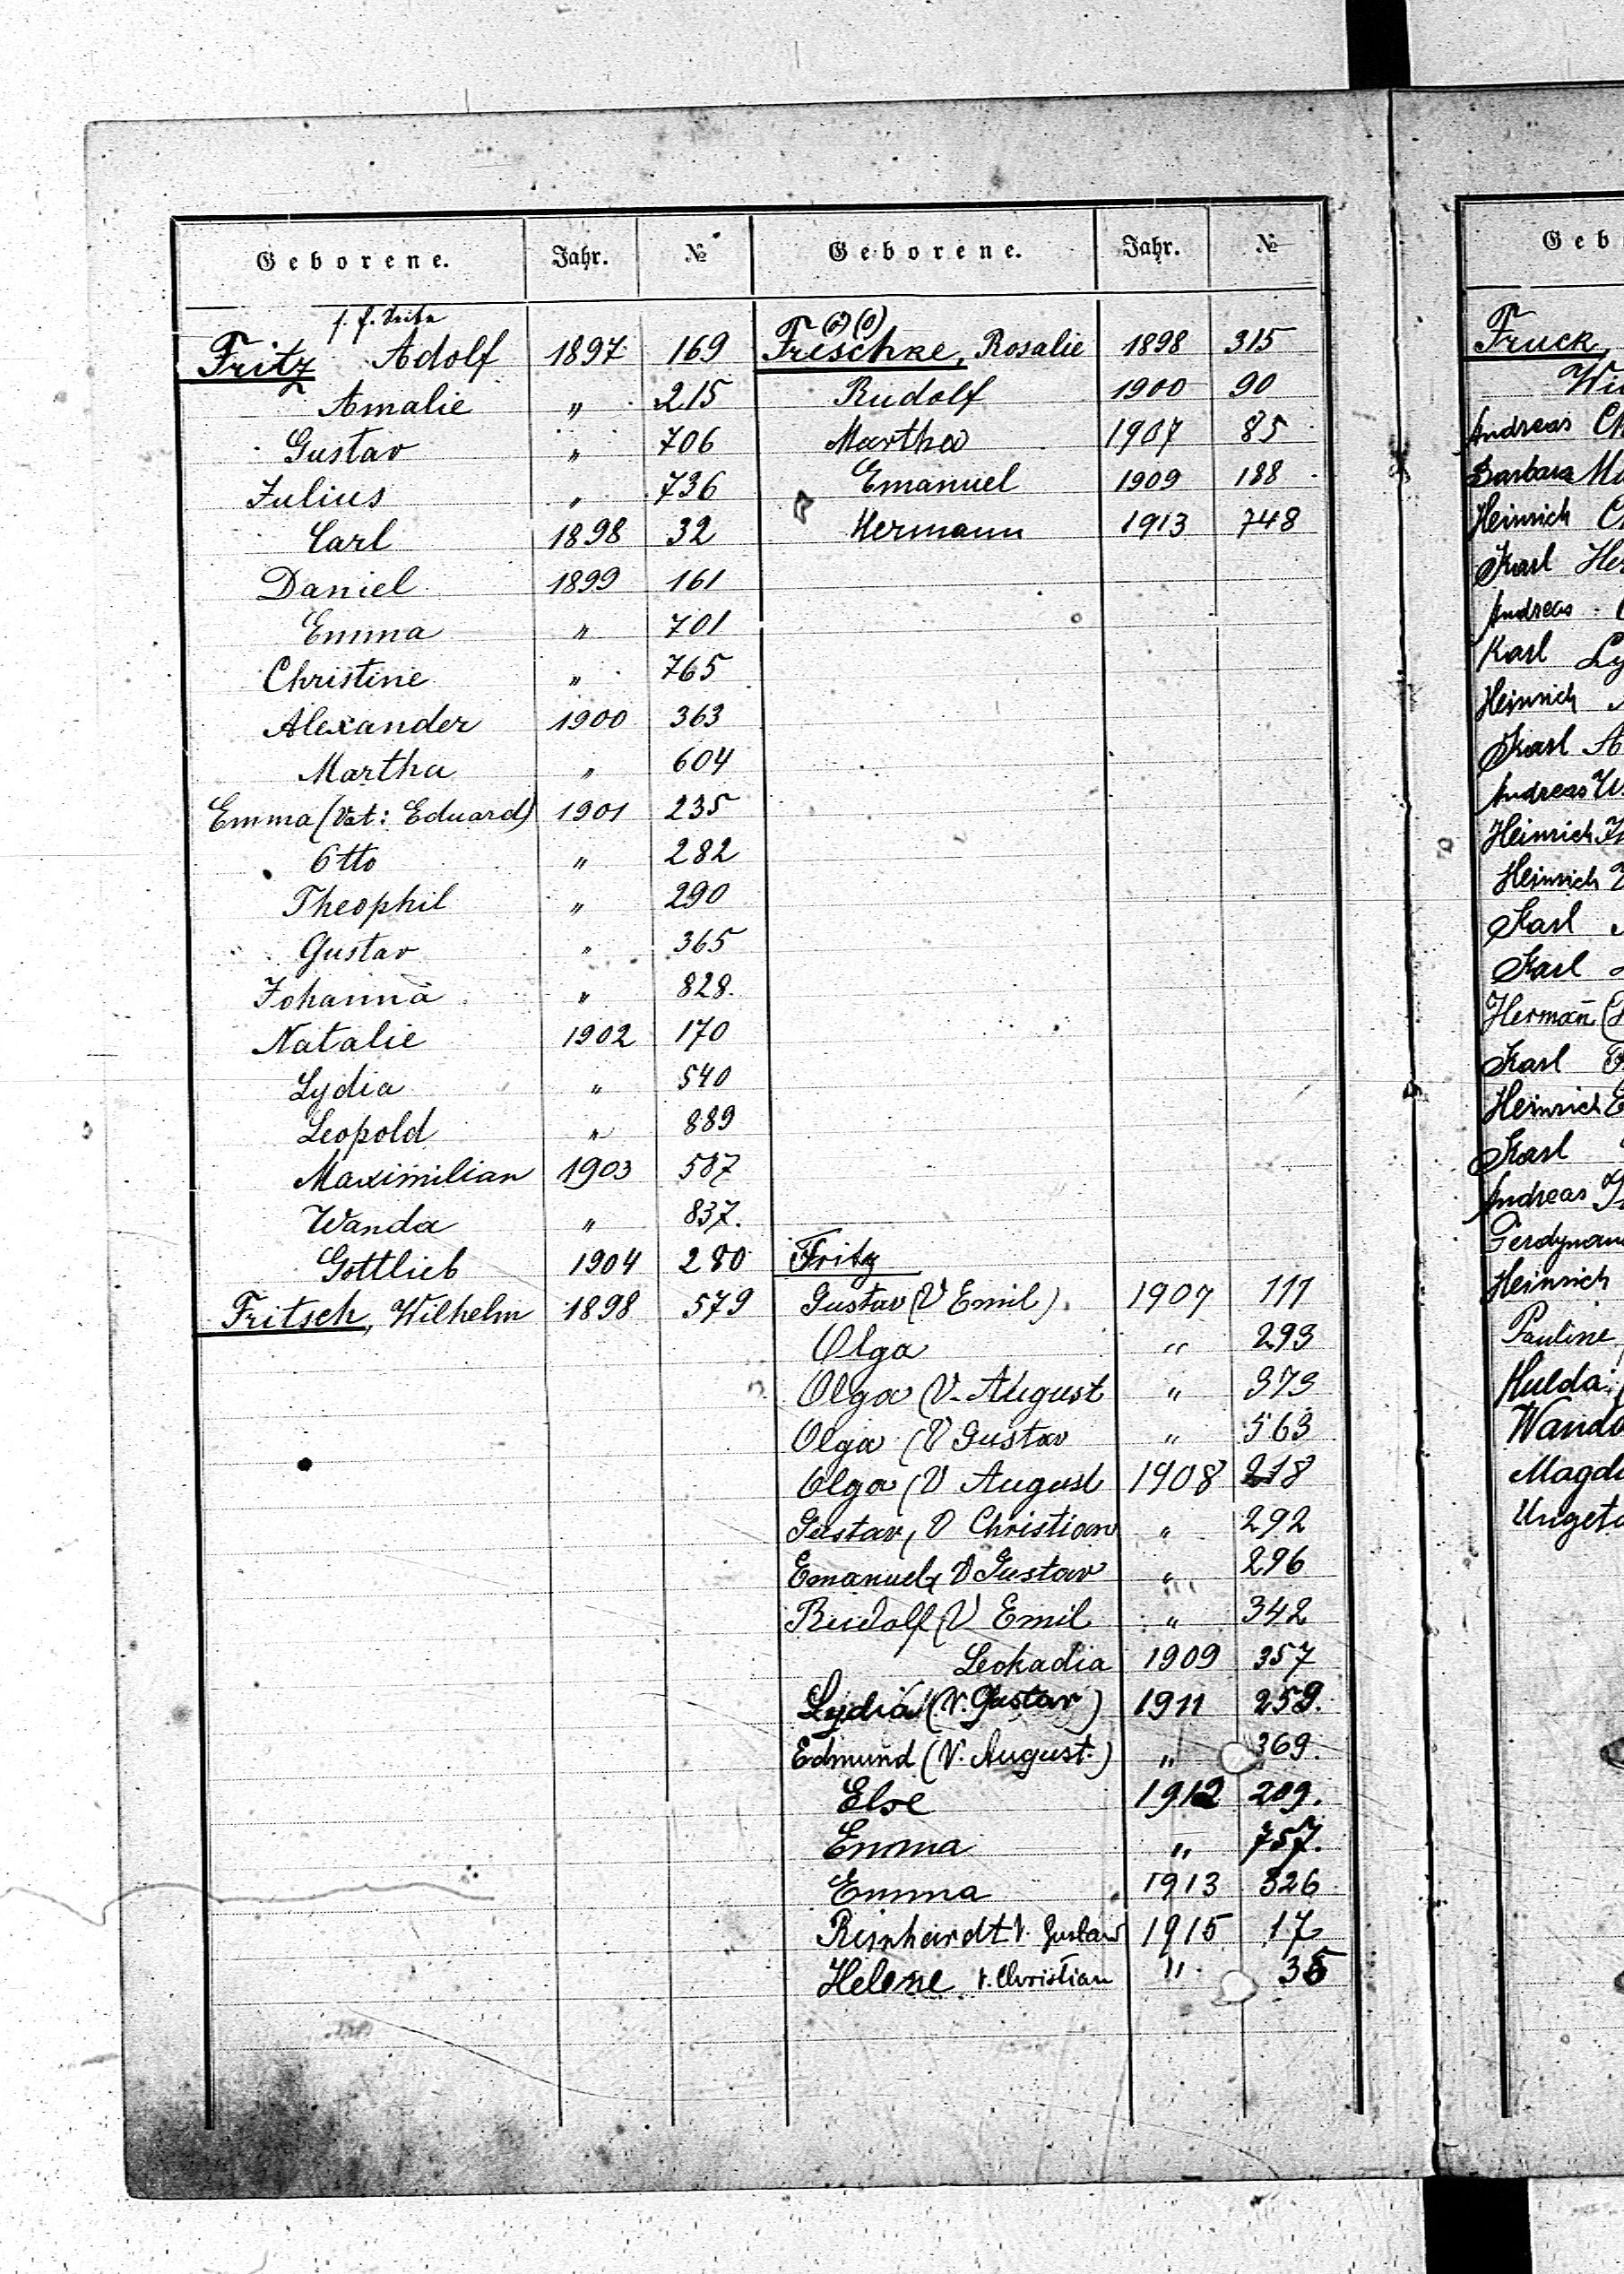 Geborene. Jahr. №
Fritz Adolf 1897 169
Amalie " 215
Gustav " 706
Julius " 736
Carl 1898 32
Daniel 1899 161
Emma " 701
Christine " 765
Alexander 1900 363
Martha " 604
Emma (Vat: Eduard) 1901 235
Otto " 282
Theophil " 290
Gustav " 365
Johanna " 828.
Natalie 1902 170
Lydia " 540
Leopold " 889
Maximilian 1903 587
Wanda " 837.
Gottlieb 1904 280
Fritsch, Wilhelm 1898 579
Geborene. Jahr. №
Freschke, Rosalie 1898 315
Rudolf 1900 90
Martha 1907 85
Emanuel 1909 188
Hermann 1913 748
Fritz
Gustav (V Emil) 1907 111
Olga " 293
Olga (V. August " 373
Olga (V Gustav " 563
Olga (V August 1908 218
Gustav, V Christian " 292
Emanuel, V Gustav " 296
Rudolf (V Emil " 342
Leokadia 1909 357
Lydia (V. Gustav) 1911 259.
Edmund (V. August.) " 369.
Else 1912 209.
Emma " 757.
Emma 1913 326
Reinhardt V. Gustav 1915 17
Helene V. Christian " 35
Geb
Fruck,
Wi
Andreas Ch
Barbara Ma
Heinrich Ch
Karl He
Andreas
Karl Ly
Heinrich
Karl A
Andreas
Heinrich
Heinrich
Karl
Karl
Hermañ
Karl
Heinrich E
Karl
Andreas
Ferdynand
Heinrich
Pauline,
Hulda
Wanda
Magda
Ungeta